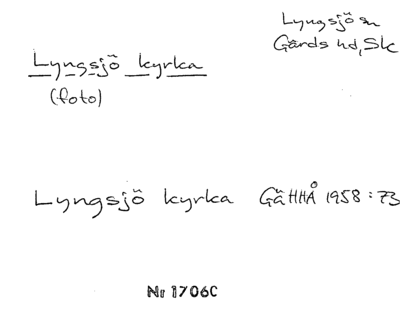 Lyngsjö sn
Gärds hd, Sk
Lyngsjö kyrka
(foto)
Lyngsjö kyrka GäHHÅ 1958:73
Nr 1706C